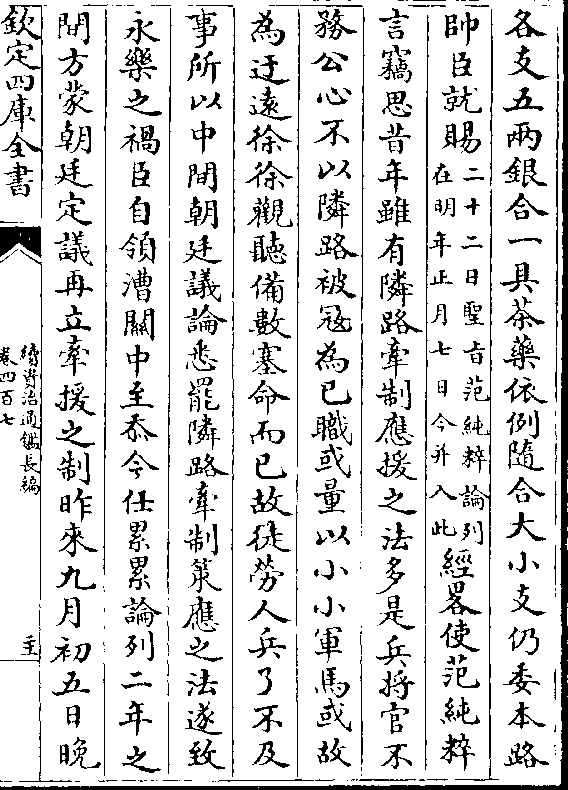 各支五兩銀合一具茶藥依例隨合大小支仍委本路
帥臣就賜二十二日聖㫖范純粹論列
在明年正月七日今并入此經畧使范純粹
言竊思昔年雖有隣路牽制應援之法多是兵將官不
務公心不以隣路被冦為已職或量以小小軍馬或故
為迂遠徐徐觀聽備數塞命而已故徒勞人兵了不及
事所以中間朝廷議論悉罷隣路牽制䇿應之法遂致
永樂之禍臣自領漕關中至忝今任累累論列二年之
間方蒙朝廷定議再立牽援之制昨來九月初五日晚
欽定四庫全書
續資治通鑑長編
卷四百七